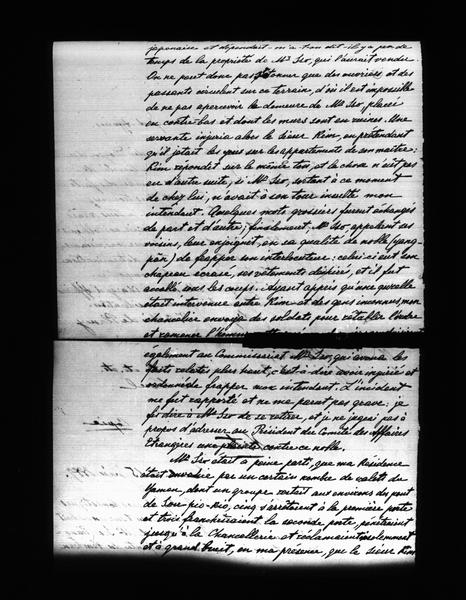 japonaise et dépendait m'a-t-on dit il y a peu de
temps de la propriété de Mr Seo, qui l'aurait vendue
On ne peut donc pas s'étonner que des ouvriers et des
passants circulent sur ce terrain, d'où il est impossible
de ne pas apercevoir la demeure de Mr Seo, placée
en contre-bas et dont les murs sont en ruines. Une
servante injuria alors le sieur Kim, en prétendant
qu'il jetait les yeux sur les appartements de son maître;
Kim répondit sur le même ton, et la chose n'eût pas
eu d'autre suite, si Mr Seo, sortant à ce moment
de chez lui, n'avait à son tour insulté mon
intendant. Quelques mots grossiers furent échangés
de part et d'autre; finalement, Mr Seo appelant ses
voisins, leur enjoignit, en sa qualité de noble (yang-
pan) de frapper son interlocuteur: celui-ci eut son
chapeau écrasé, ses vêtements déchirés, et il fut
accablé sous les coups. Ayant appris qu'une querelle
était intervenue entre Kim et des gens inconnus, mon
chancelier envoya des soldats pour rétablir l'ordre
et ramener
également au Commissariat Mr Seo, qui avoua les
faits relatés plus haut, c'est-à-dire avoir injurié et
ordonné de frapper mon intendant. L'incident
me fut rapporté et ne me parut pas grave; je
fis dire à Mr Seo de se retirer, et je ne jugeai pas à
propos d'adresser au Président du Comité des Affaires
Etrangères une plainte contre ce noble.
Mr Seo était à peine parti, que ma Résidence
était envahie par un certain nombre de valets du
Yamen, dont un groupe restait aux environs du pont
de Sou-pio-kio, cinq s'arrêtaient à la première porte
et trois franchissaient la seconde porte, pénétraient
jusqu'à la Chancellerie et réclamaient insolemment
et à grand bruit, en ma présence, que le sieur Kim